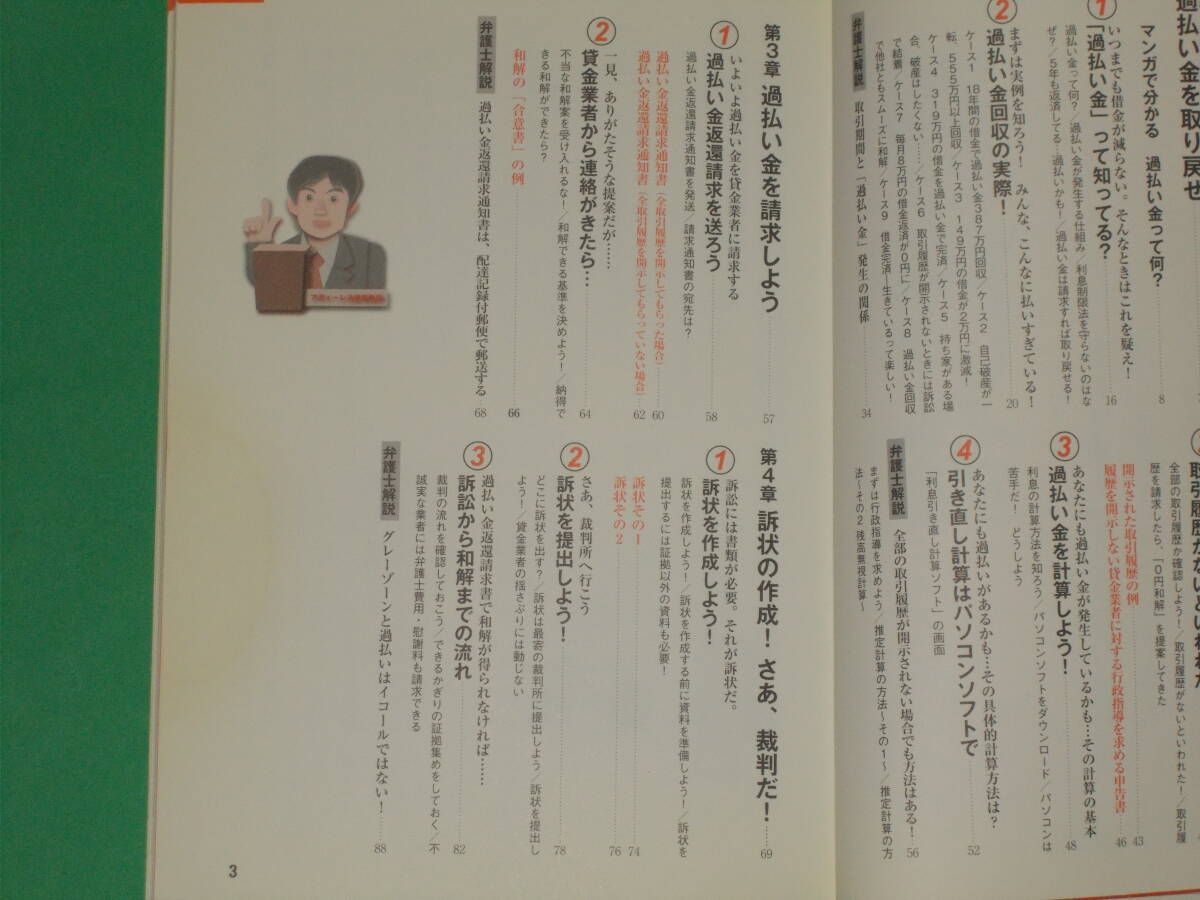 過払い金を取り戻せ
マンガで分かる 過払い金って何? 8
いつまでも借金が減らない。そんなときはこれを疑え!
① 「過払い金」って知ってる? 16
過払い金って何?/過払い金が発生する仕組み/利息制限法を守らないのはな
ぜ?/5年も返済してる…過払いかも!/過払い金は請求すれば取り戻せる!
まずは実例を知ろう! みんな、こんなに払いすぎている!
② 過払い金回収の実際! 20
ケース1 18年間の借金で過払い金387万円回収/ケース2 自己破産が一
転、555万円以上回収/ケース3 149万円の借金が2万円に激減!
ケース4 319万円の借金を過払い金で完済/ケース5 持ち家がある場
合、破産はしたくない……/ケース6 取引履歴が開示されないときには訴訟
で結着/ケース7 毎月8万円の借金返済が0円に/ケース8 過払い金回収
で他社ともスムーズに和解/ケース9 借金完済―生きているって楽しい!
弁護士解説 取引期間と「過払い金」発生の関係 34
全部の取引履歴か確認しよう!/取引履歴がないといわれた!/取引履
歴を請求したら、「0円和解」を提案してきた
開示された取引履歴の例 43
履歴を開示しない貸金業者に対する行政指導を求める申告書 46
あなたにも過払い金が発生しているかも…その計算の基本
③ 過払い金を計算しよう! 48
利息の計算方法を知ろう/パソコンソフトをダウンロード/パソコンは
苦手だ! どうしよう
あなたにも過払いがあるかも…その具体的計算方法は?
④ 引き直し計算はパソコンソフトで 52
「利息引き直し計算ソフト」の画面
弁護士解説 全部の取引履歴が開示されない場合でも方法はある! 56
まずは行政指導を求めよう/推定計算の方法~その1~/推定計算の方
法~その2 残高無視計算~
第3章 過払い金を請求しよう 57
いよいよ過払い金を貸金業者に請求する
① 過払い金返還請求を送ろう 58
過払い金返還請求通知書を発送/請求通知書の宛先は?
過払い金返還請求通知書(全取引履歴を開示してもらった場合) 60
過払い金返還請求通知書(全取引履歴を開示してもらっていない場合) 62
一見、ありがたそうな提案だが……
② 貸金業者から連絡がきたら… 64
不当な和解案を受け入れるな!/和解できる基準を決めよう!/納得で
きる和解ができたら?
和解の「合意書」の例 66
弁護士解説 過払い金返還請求通知書は、配達記録付郵便で郵送する 68
第4章 訴状の作成! さあ、裁判だ! 69
訴訟には書類が必要。それが訴状だ。
① 訴状を作成しよう!
訴状を作成しよう!/訴状を作成する前に資料を準備しよう!/訴状を
提出するには証拠以外の資料も必要!
訴状その1 74
訴状その2 76
さあ、裁判所へ行こう
② 訴状を提出しよう! 78
どこに訴状を出す?/訴状は最寄の裁判所に提出しよう/訴状を提出し
よう!/貸金業者の揺さぶりには動じない
過払い金返還請求書で和解が得られなければ……
③ 訴訟から和解までの流れ 82
裁判の流れを確認しておこう/できるかぎりの証拠集めをしておく/不
誠実な業者には弁護士費用・慰謝料も請求できる
弁護士解説 グレーゾーンと過払いはイコールではない! 88
3